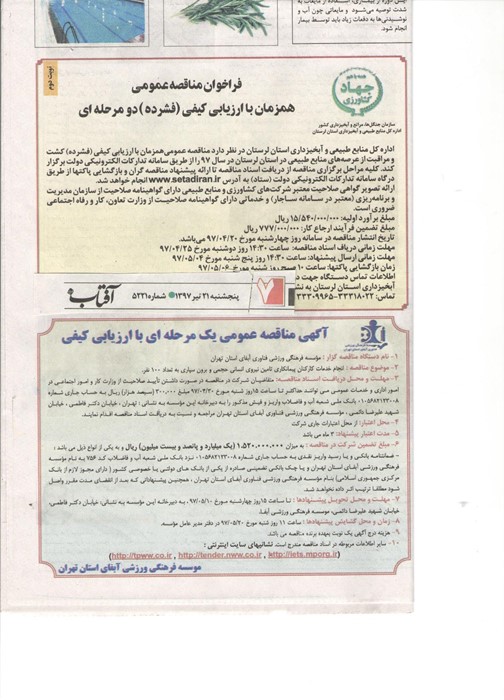 شدت توصیه می‌شود و مایعاتی چون آب و
نوشیدنی‌ها به دفعات زیاد باید توسط بیمار
انجام شود.
نوبت دوم
فراخوان مناقصه عمومی
همزمان با ارزیابی کیفی (فشرده) دو مرحله ای
جهاد کشاورزی
سازمان جنگل‌ها، مراتع و آبخیزداری کشور
اداره کل منابع طبیعی و آبخیزداری استان لرستان
اداره کل منابع طبیعی و آبخیزداری استان لرستان در نظر دارد مناقصه عمومی همزمان با ارزیابی کیفی (فشرده) کشت
و مراقبت از عرصه‌های منابع طبیعی در استان لرستان در سال ۹۷ را از طریق سامانه تدارکات الکترونیکی دولت برگزار
کند. کلیه مراحل برگزاری مناقصه از دریافت اسناد مناقصه تا ارائه پیشنهاد مناقصه گران و بازگشایی پاکتها از طریق
درگاه سامانه تدارکات الکترونیکی دولت (ستاد) به آدرس www.setadiran.ir انجام خواهد شد.
ارائه تصویر گواهی صلاحیت معتبر شرکت‌های کشاورزی و منابع طبیعی دارای گواهینامه صلاحیت از سازمان مدیریت
و برنامه‌ریزی (معتبر در سامانه ساجار) و خدماتی دارای گواهینامه صلاحیت از وزارت تعاون، کار و رفاه اجتماعی
ضروری است.
مبلغ برآورد اولیه: ۱۵/۵۴۰/۰۰۰/۰۰۰ ریال
مبلغ تضمین فرآیند ارجاع کار: ۷۷۷/۰۰۰/۰۰۰ ریال
تاریخ انتشار مناقصه در سامانه روز چهارشنبه مورخ ۹۷/۰۴/۲۰ می‌باشد.
مهلت زمانی دریافت اسناد مناقصه: ساعت ۱۴:۳۰ روز دوشنبه مورخ ۹۷/۰۴/۲۵
مهلت زمانی ارسال پیشنهاد: ساعت ۱۴:۳۰ روز پنج شنبه مورخ ۹۷/۰۵/۰۴
زمان بازگشایی پاکتها: ساعت ۱۰ صبح روز شنبه مورخ ۹۷/۰۵/۰۶
اطلاعات تماس دستگاه جهت
آبخیزداری استان لرستان به نش
تماس: ۳۳۳۱۸۰۲۲-۳۳۳۰۹۹۶۵
۷
پنجشنبه ۲۱ تیر ۱۳۹۷ شماره ۵۲۳۱
آفتاب
آگهی مناقصه عمومی یک مرحله ای با ارزیابی کیفی
۱- نام دستگاه مناقصه گزار: مؤسسه فرهنگی ورزشی فناوری آبفای استان تهران
۲- موضوع مناقصه: انجام خدمات کارکنان پیمانکاری تامین نیروی انسانی حجمی و برون سپاری به تعداد ۱۰۰ نفر.
۳- مهلت و محل دریافت اسناد مناقصه: متقاضیان شرکت در مناقصه در صورت داشتن تأیید صلاحیت از وزارت کار و امور اجتماعی در
امور اداری و خدمات عمومی می توانند حداکثر تا ساعت ۱۵ روز شنبه مورخ ۹۷/۰۴/۳۰ مبلغ ۳۰۰/۰۰۰ (سیصد هزار) ریال به حساب جاری شماره
۰۱۰۵۶۸۲۱۳۳۰۰۸ بانک ملی شعبه آب و فاضلاب واریز و فیش مذکور را به دبیرخانه این مؤسسه به نشانی: تهران، خیابان دکتر فاطمی، خیابان
شهید علیرضا دائمی، مؤسسه فرهنگی ورزشی فناوری آبفای استان تهران مراجعه و نسبت به دریافت اسناد مناقصه اقدام نمایند.
۴- محل اعتبار: از محل اعتبارات جاری شرکت
۵- مدت اعتبار پیشنهاد: ۳ ماه می باشد
۶- مبلغ تضمین شرکت در مناقصه: به میزان ۱،۵۲۰،۰۰۰،۰۰۰ (یک میلیارد و پانصد و بیست میلیون) ریال و به یکی از انواع ذیل می باشد:
- ضمانتنامه بانکی و یا رسید واریز نقدی به حساب جاری شماره ۰۱۰۵۶۸۲۱۳۳۰۰۸ نزد بانک ملی شعبه آب و فاضلاب کد ۷۵۶ به نام مؤسسه
فرهنگی ورزشی آبفای استان تهران و یا چک بانکی تضمینی صادره از یکی از بانک های دولتی یا خصوصی کشور (دارای مجوز لازم از بانک
مرکزی جمهوری اسلامی) بنام مؤسسه فرهنگی ورزشی آبفای استان تهران، همچنین پیشنهاداتی که بعد از انقضای مدت مقرر واصل
شود مطلقا ترتیب اثر داده نخواهد شد.
۷- مهلت و محل تحویل پیشنهادها: تا ساعت ۱۵ روز چهارشنبه مورخ ۹۷/۰۵/۱۰، به دبیرخانه این مؤسسه به نشانی: تهران، خیابان دکتر فاطمی،
خیابان شهید علیرضا دائمی، مؤسسه فرهنگی ورزشی آبفای استان تهران.
۸- زمان و محل گشایش پیشنهادها: ساعت ۱۱ روز شنبه مورخ ۹۷/۰۵/۲۰ در دفتر مدیر عامل مؤسسه.
۹- هزینه درج آگهی یک نوبت بعهده برنده مناقصه می باشد.
۱۰- سایر اطلاعات مربوطه در اسناد مناقصه مندرج است. نشانیهای سایت اینترنتی:
(http://tpww.co.ir, http://tender.nww.co.ir, http://iets.mporg.ir)
موسسه فرهنگی ورزشی آبفای استان تهران